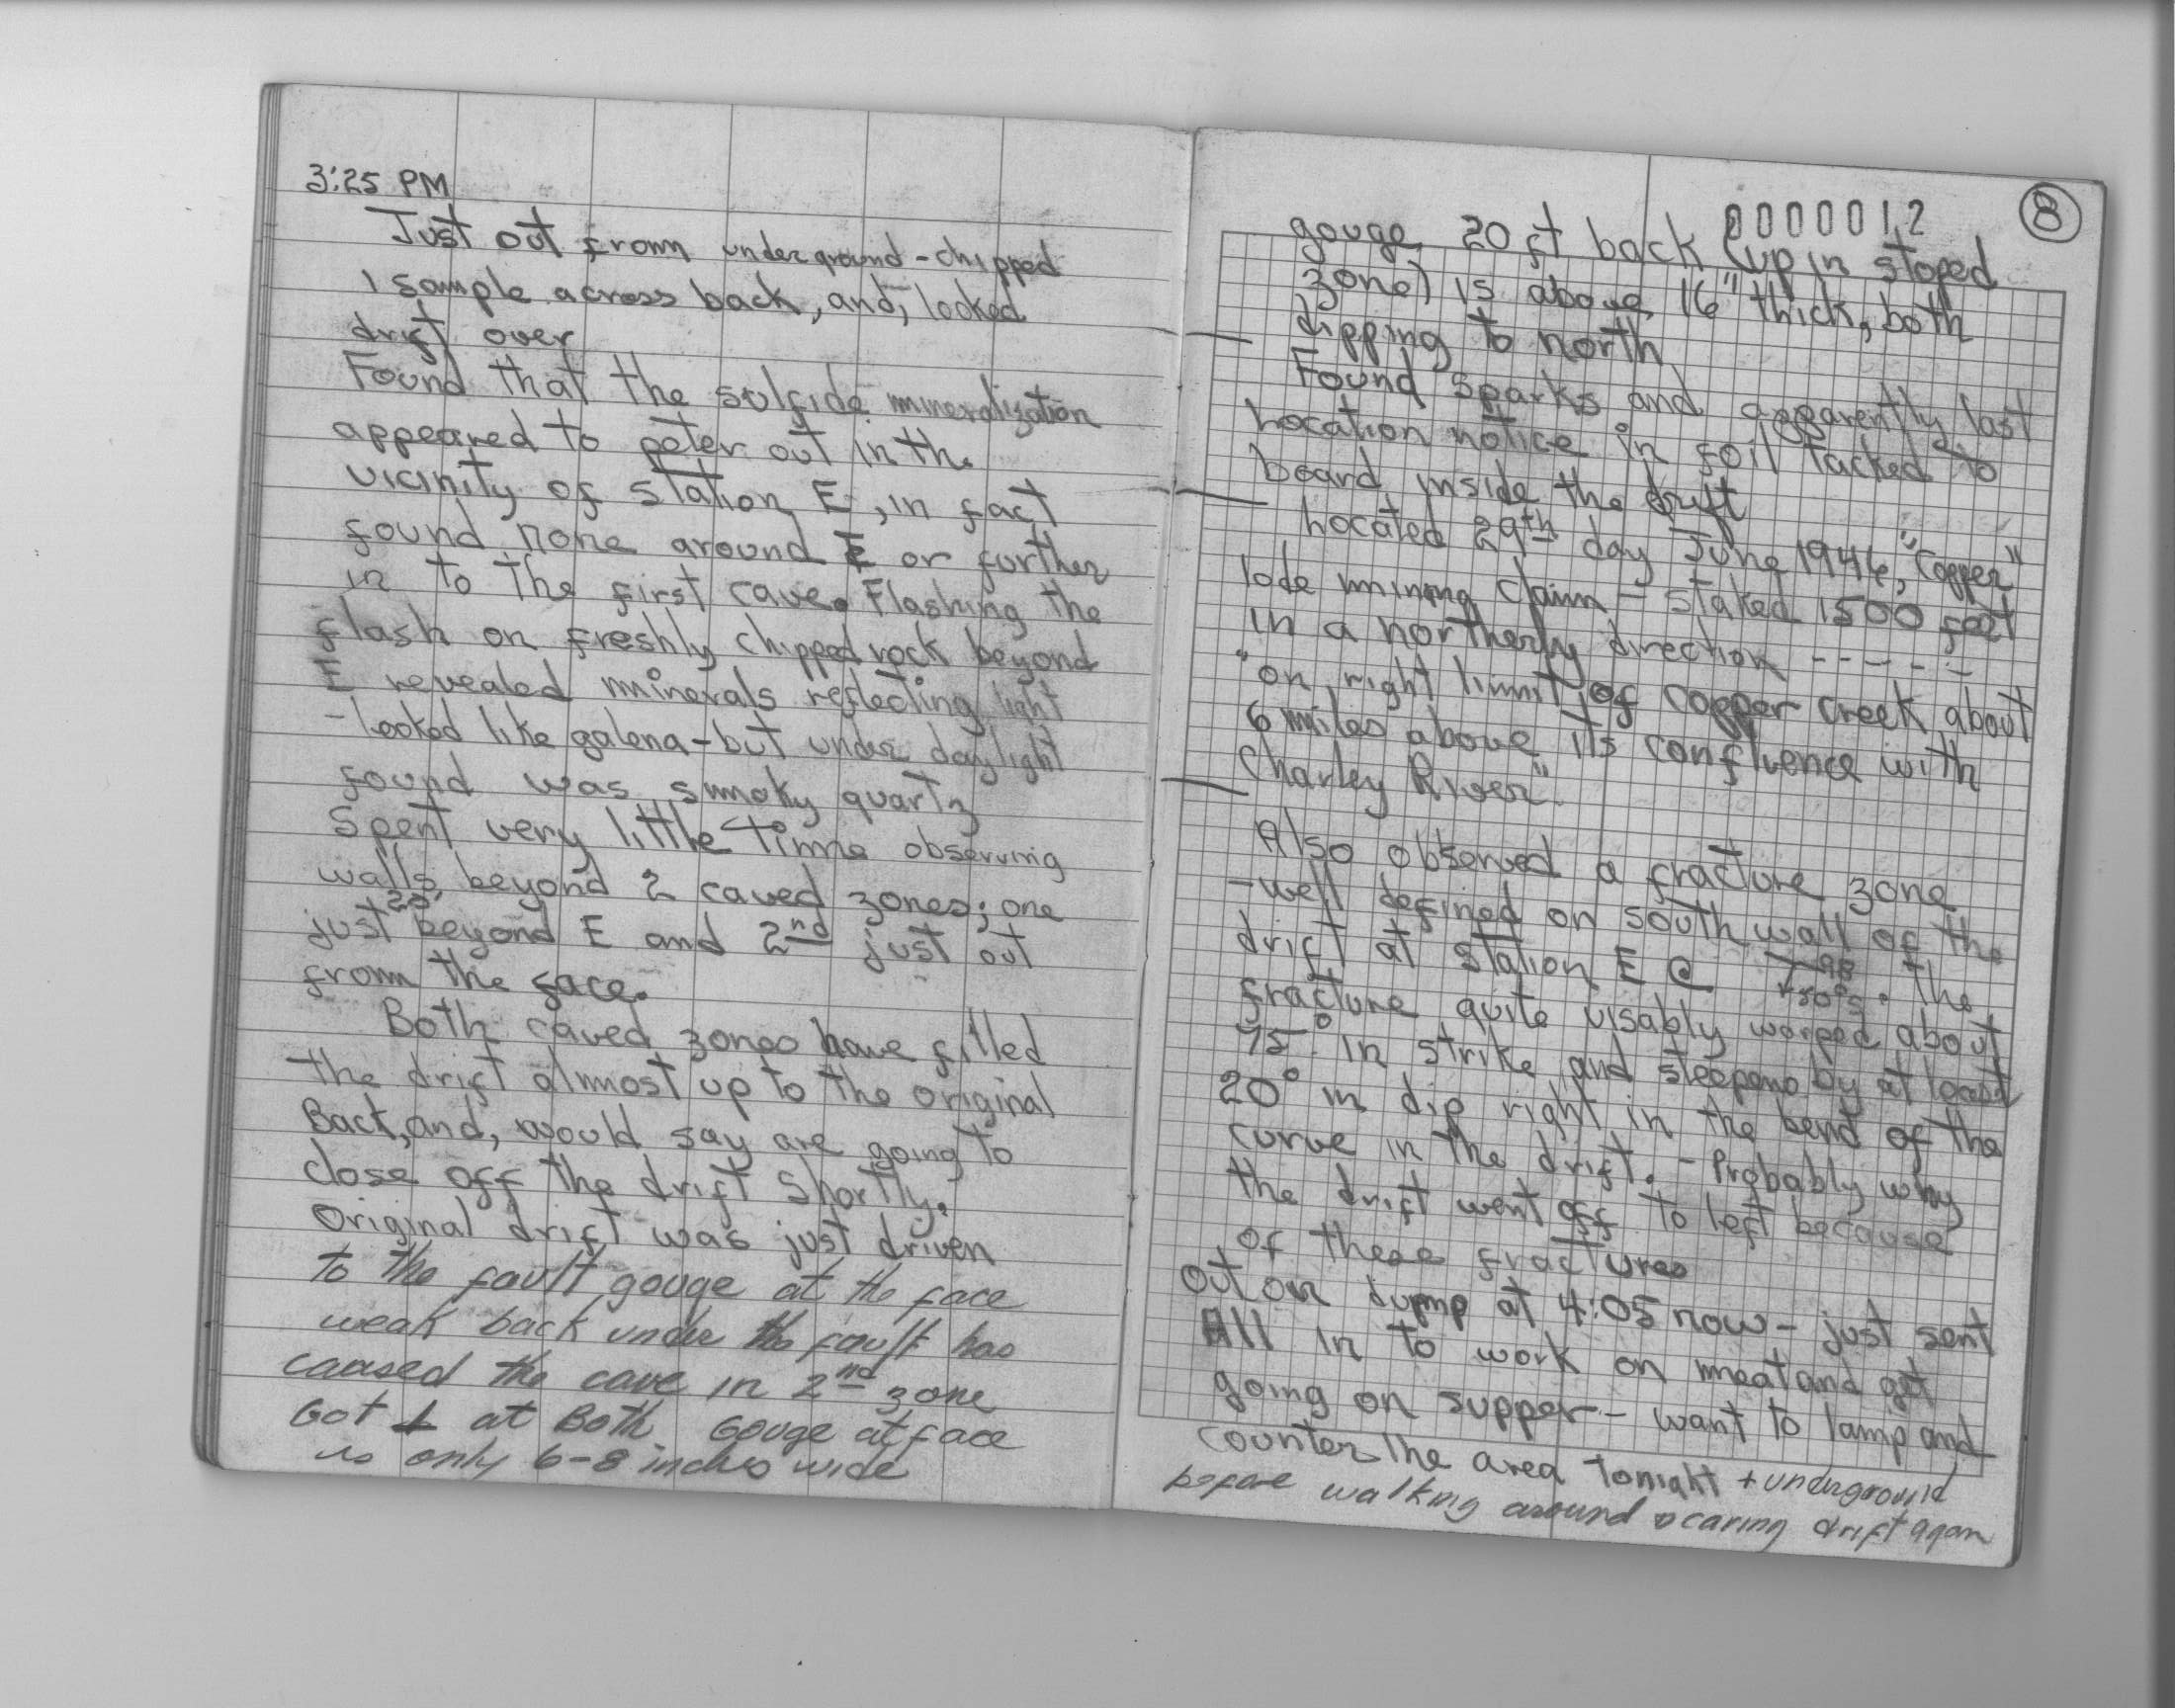 3:25 PM
Just out from underground - chipped
1 sample across back, and, looked
drift over
Found that the sulfide mineralization
appeared to peter out in the
vicinity of station E, in fact
found none around E or further
in to the first cave. Flashing the
flash on freshly chipped rock beyond
E revealed minerals reflecting light
- looked like galena - but under daylight
found was smoky quartz
Spent very little time observing
walls beyond 2 caved zones; one
just 25' beyond E and 2nd just out
from the face.
Both caved zones have filled
the drift almost up to the original
Back, and, would say are going to
close off the drift shortly.
Original drift was just driven
to the fault gouge at the face
weak back under the fault has
caused the cave in 2nd zone
Got at Both Gouge at face
is only 6-8 inches wide
0000012
8
gouge 20 ft back (up in stoped
zone) is above 16" thick, both
dipping to north
Found Sparks and apparently last
Location notice in foil tacked to
board inside the drift
Located 29th day June 1946, "Copper"
lode mining claim - staked 1500 feet
in a northerly direction - - - - - -
"on right limit of Copper Creek about
6 miles above its confluence with
Charley River"
Also observed a fracture zone
- well defined on south wall of the
drift at station E @ The
fracture quite visably warped about
75° in strike and steepens by at least
20° in dip right in the bend of the
curve in the drift. - Probably why
the drift went off to left because
of these fractures
out on dump at 4:05 now - just sent
All in to work on meat and get
going on supper - want to lamp and
counter the area tonight + underground
before walking around caring drift again